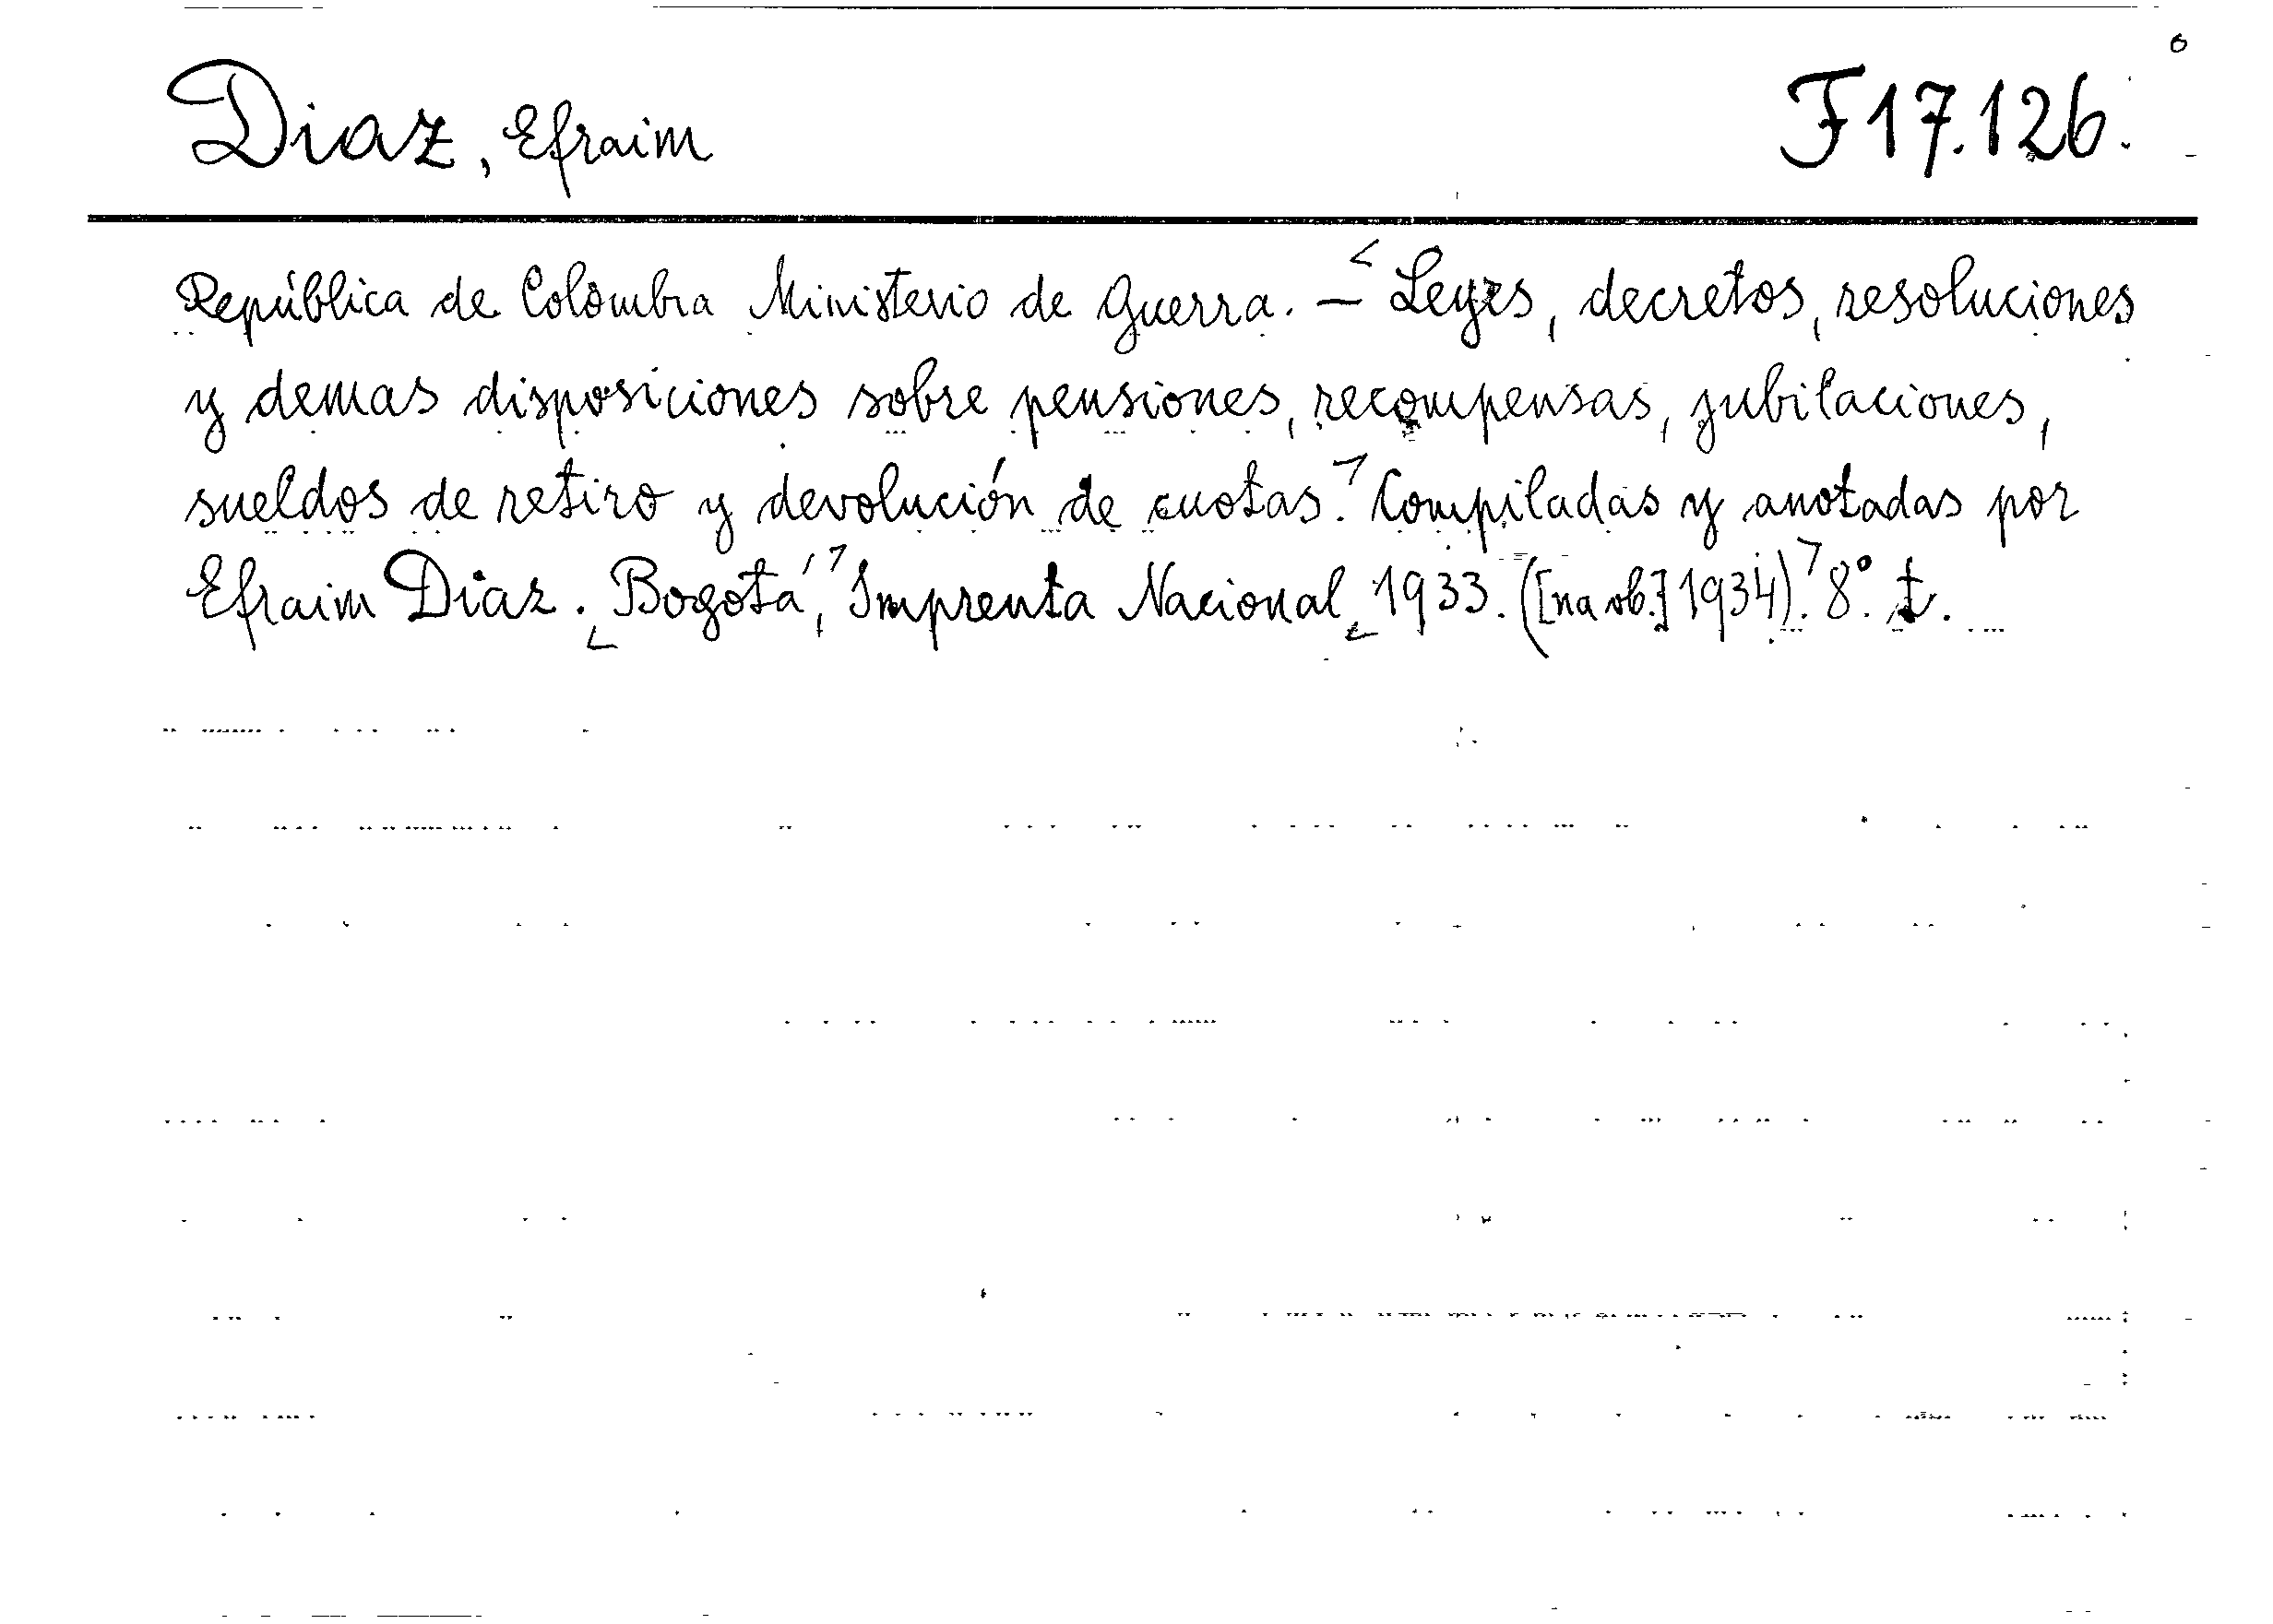 Diaz, Efraim F17.126.
República de Colombia Ministerio de Guerra. – <Leyes, decretos, resoluciones
y demas disposiciones sobre pensiones, recompensas, jubilaciones,
sueldos de retiro y devolución de cuotas.> Compiladas y anotadas por
Efraim Diaz. <Bogotá,> Imprenta Nacional, <1933. ([na ob.] 1934).> 8°. t.